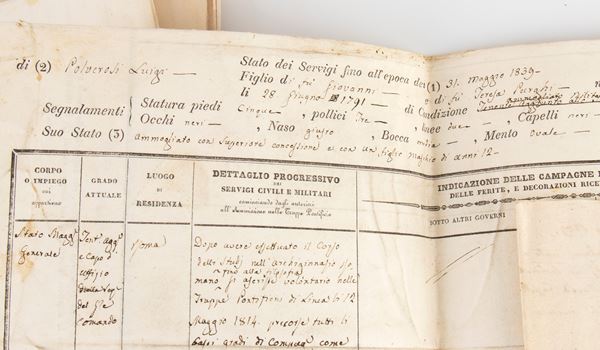 Stato dei Servigi fino all'epoca dei (1) 31. Maggio 1839.
di (2) Polveroli Luigi — Figlio di fù Giovanni — e di fù Teresa
li 28 Giugno 1791 — di Condizione
Segnalamenti Statura piedi Cinque, pollici Tre, linee due — , Capelli neri —
Occhi neri — , Naso giusto, Bocca, Mento Ovale —
Suo Stato (3) Ammogliato con Superiore concessione e con un figlio maschio di anni 12 —
CORPO O IMPIEGO cui appartiene
GRADO ATTUALE
LUOGO DI RESIDENZA
DETTAGLIO PROGRESSIVO
DEI
SERVIGI CIVILI E MILITARI
cominciando dagli anteriori
all'Ammissione nelle Truppe Pontificie
INDICAZIONE DELLE CAMPAGNE
DELLE FERITE, E DECORAZIONI RICE
SOTTO ALTRI GOVERNI
Stato Magg.
Generale
Ten. Agg.
e Capo d'
uffizio
del
Comando
Roma
Dopo avere effettuato il Corso
delli Studj nell'Archiginnasio
fino alla filosofia
mano si ascrisse volontario nelle
Truppe Pontificie di Linea li 12
Maggio 1814. percorse tutti li
bassi gradi di Compag. come